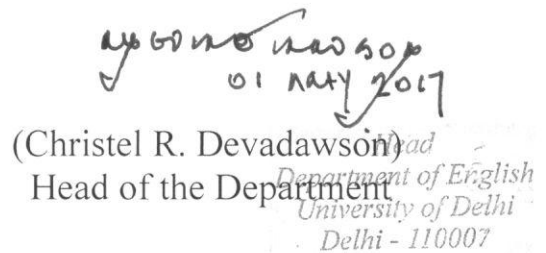 01 MAY 2017
(Christel R. Devadawson)
Head of the Department
Head
Department of English
University of Delhi
Delhi - 110007